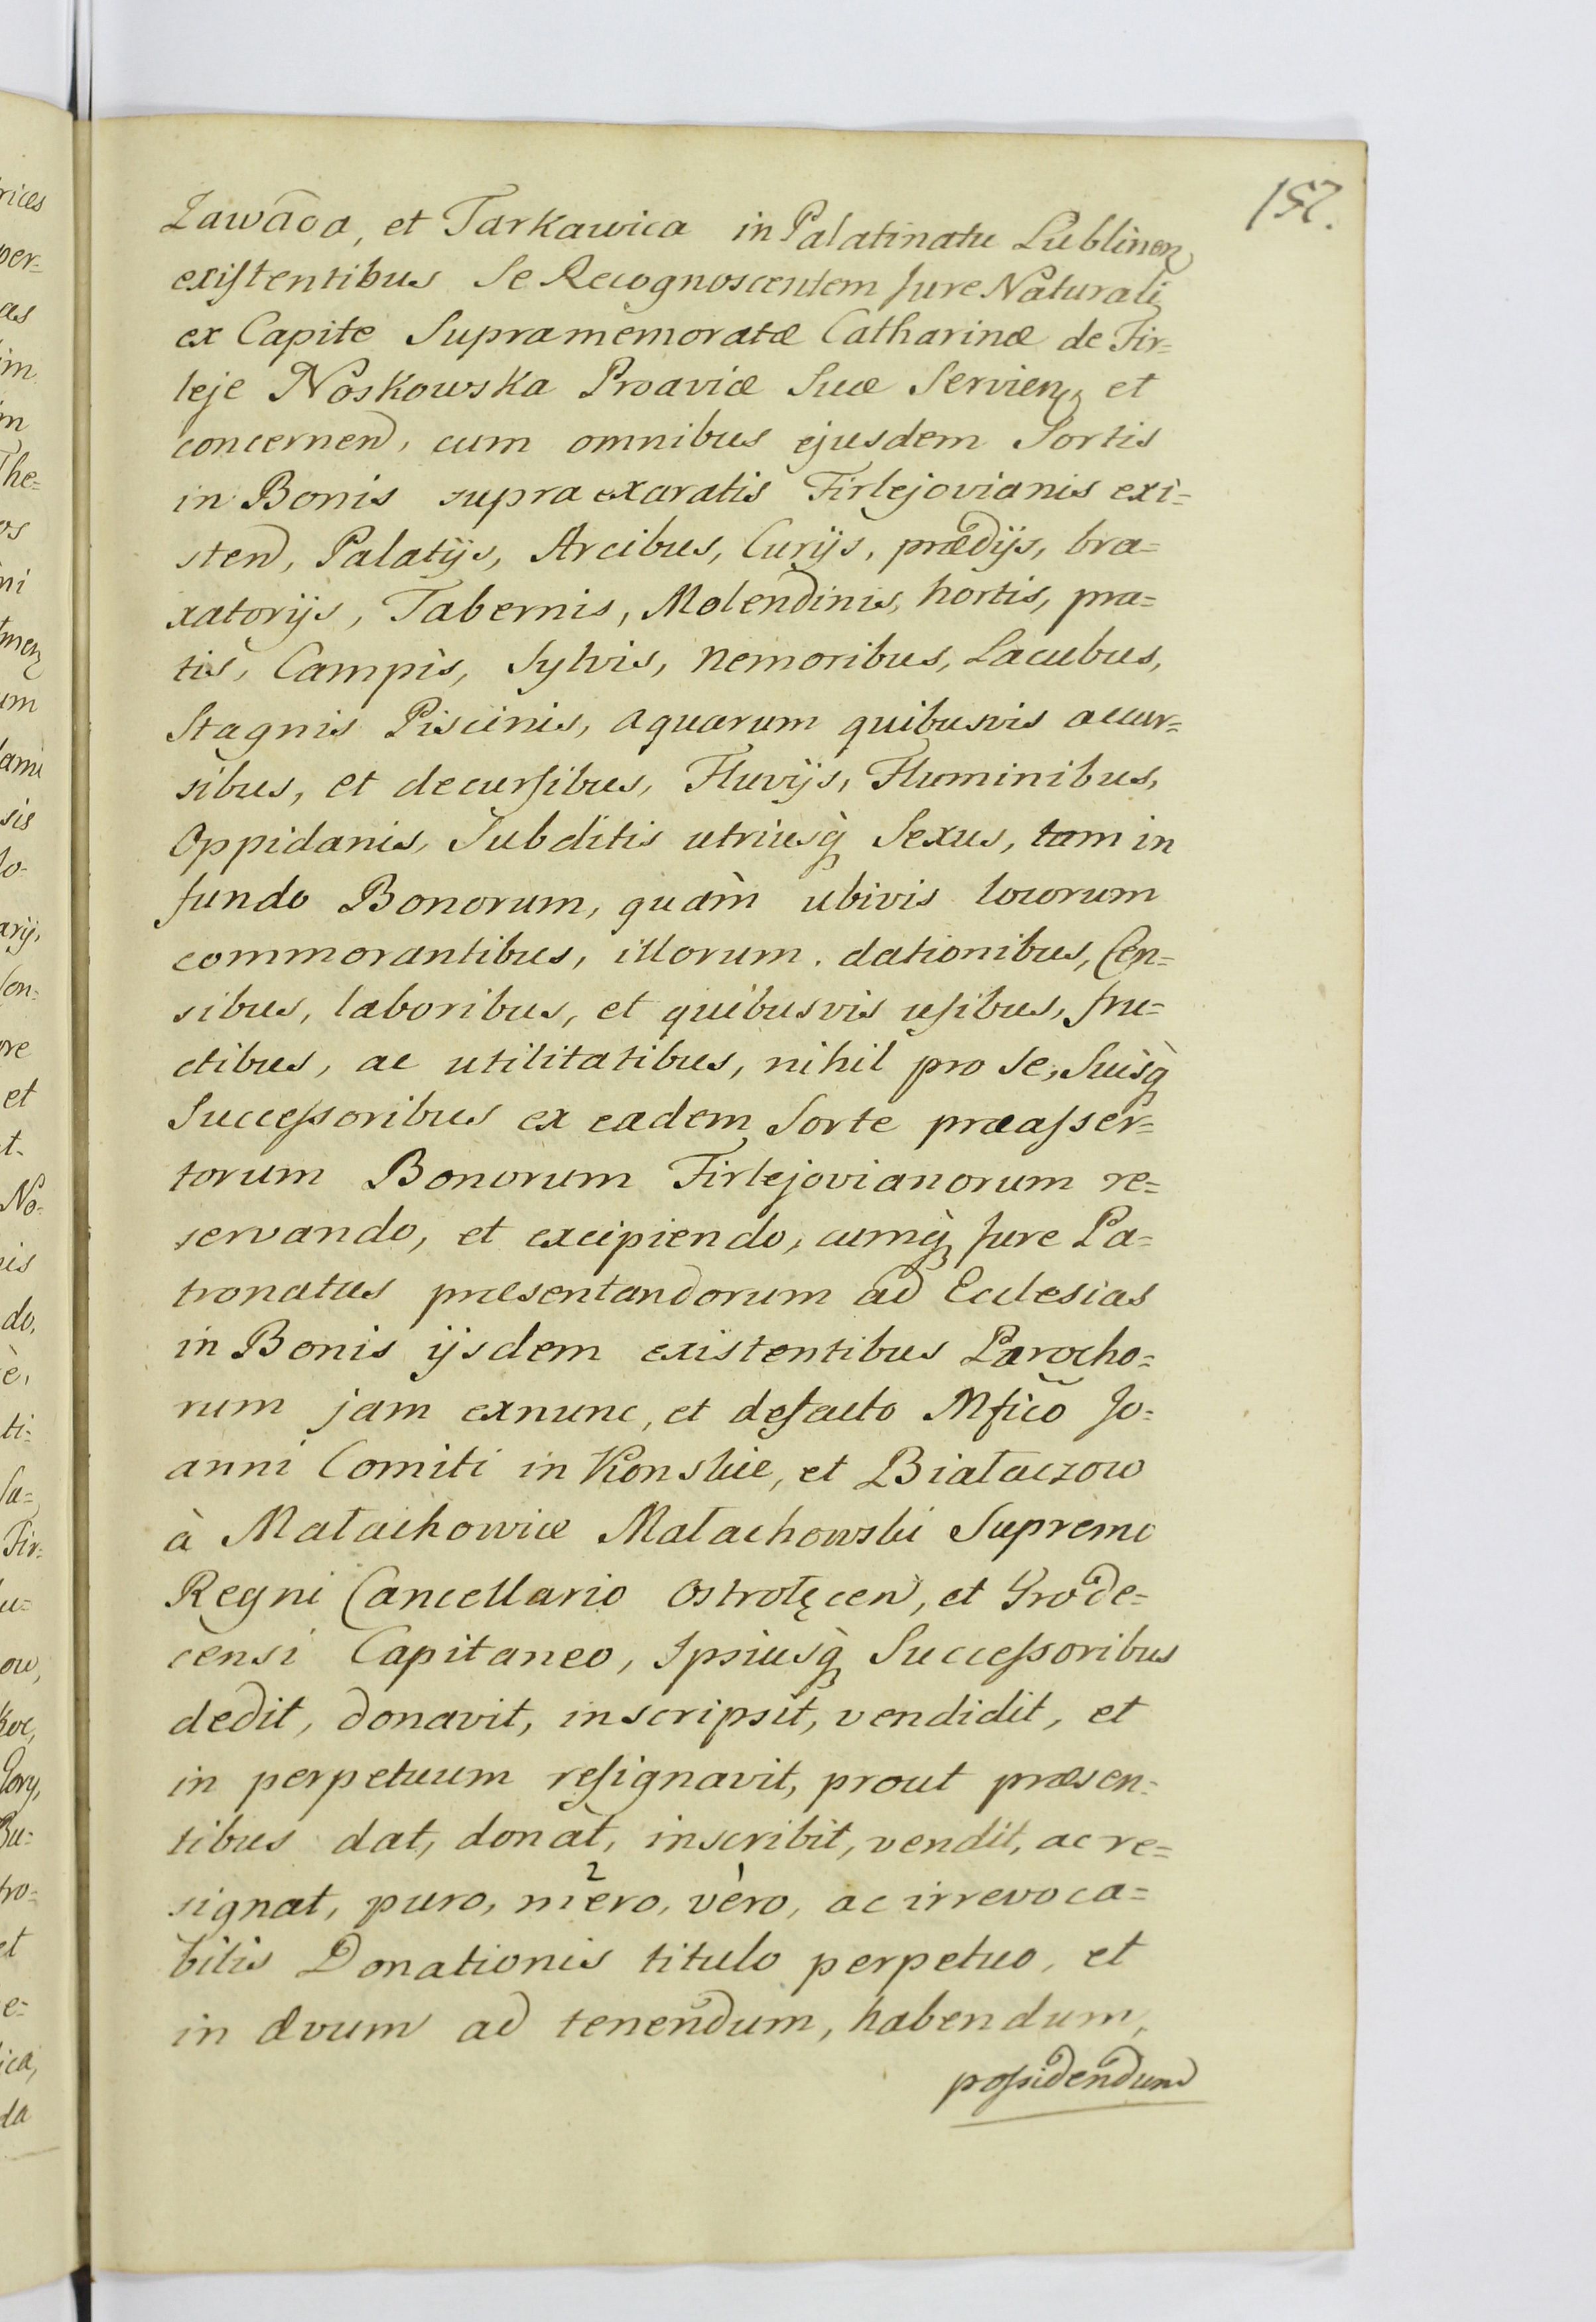 157.
Zawada, et Tarkawica in Palatinatu Lublinen
existentibus Se Recognoscentem Jure Naturali
ex Capite Supramemoratæ Catharinæ de Fir=
leje Noskowska Proaviæ Suæ Servien, et
concernen, cum omnibus ejusdem Sortis
in Bonis supra exaratis Firlejovianis exi=
sten, Palatijs, Arcibus, Curijs, prædijs, bra=
xatorijs, Tabernis, Molendinis, hortis, pra=
tis, Campis, Sylvis, Nemoribus, Lacubus,
Stagnis Piscinis, aquarum quibusvis accur=
sibus, et decursibus, Fluvijs, Fluminibus,
Oppidanis, Subditis utriusq̀ Sexus, tam in
fundo Bonorum, quàm ubivis locorum
commorantibus, illorum. dationibus, Cen=
sibus, laboribus, et quibusvis usibus, fru=
ctibus, ac utilitatibus, nihil pro se, Suisq̀
Successoribus ex eadem Sorte præasser=
torum Bonorum Firlejovianorum re=
servando, et excipiendo, cumq̀ Jure Pa=
tronatus præsentandorum ad Ecclesias
in Bonis ijsdem existentibus Parocho=
rum jam exnunc, et defacto Mfico Jo=
anni Comiti in Konskie, et Białaczow
à Małachowice Małachowski Supremo
Regni Cancellario Ostrołęcen, et Grode=
censi Capitaneo, Ipsiusq̀ Successoribus
dedit, donavit, inscripsit, vendidit, et
in perpetuum resignavit, prout præsen=
tibus dat, donat, inscribit, vendit, ac re=
signat, puro, mero, vero, ac irrevoca=
bilis Donationis titulo perpetuo, et
in ævum ad tenendum, habendum,
possidendum